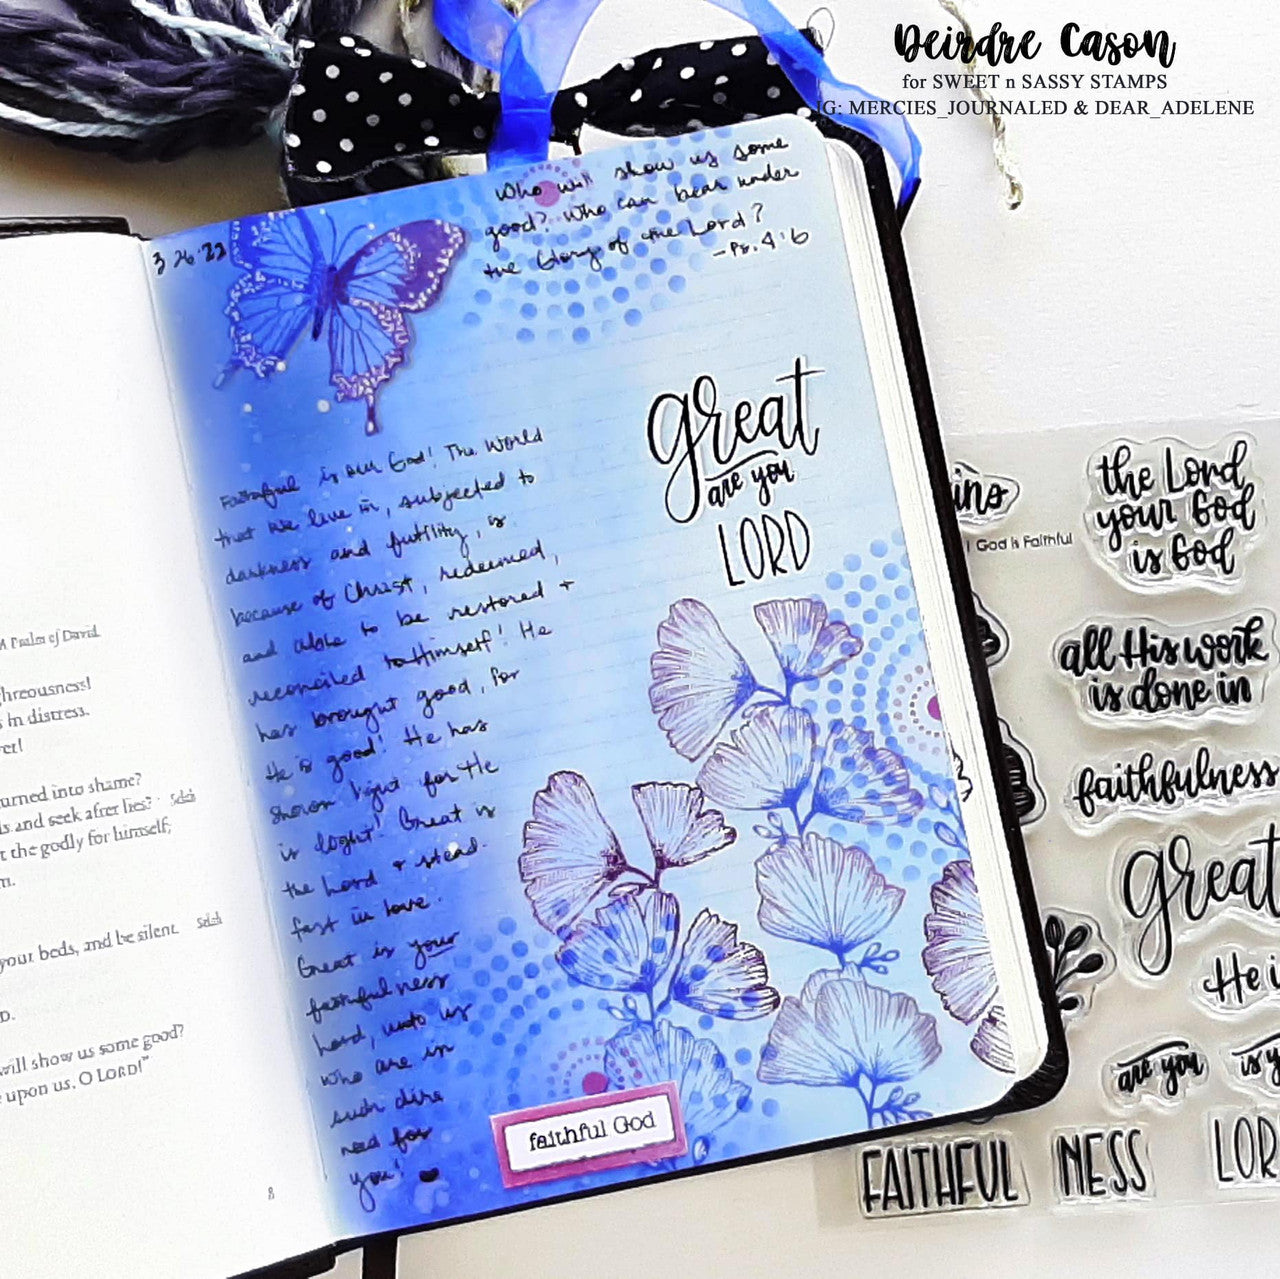 Deirdre Cason
for SWEET n SASSY STAMPS
IG: MERCIES_JOURNALED & DEAR_ADELENE
3 26 22
Who will show us some
good? Who can bear under
the Glory of the Lord?
-Ps. 4:6
great
are you
LORD
Faithful is our God! The World
that we live in, subjected to
darkness and futility, is
because of Christ, redeemed,
and able to be restored +
reconciled to Himself! He
has brought good, for
He is good! He has
shown light for He
is light! Great is
the Lord + stead-
fast in love.
Great is your
faithfulness
Lord, unto us
who are in
such dire
need for
you!
faithful God
A Psalm of David.
ghteousness!
s in distress.
er!
urned into shame?
s and seek after lies? Selah
t the godly for himself;
m.
your beds, and be silent. Selah
D.
will show us some good?
upon us, O LORD!"
8
ins
God is Faithful
the Lord
your God
is God
all His work
is done in
faithfulness
great
He i
are you
is y
FAITHFUL
NESS
LOR